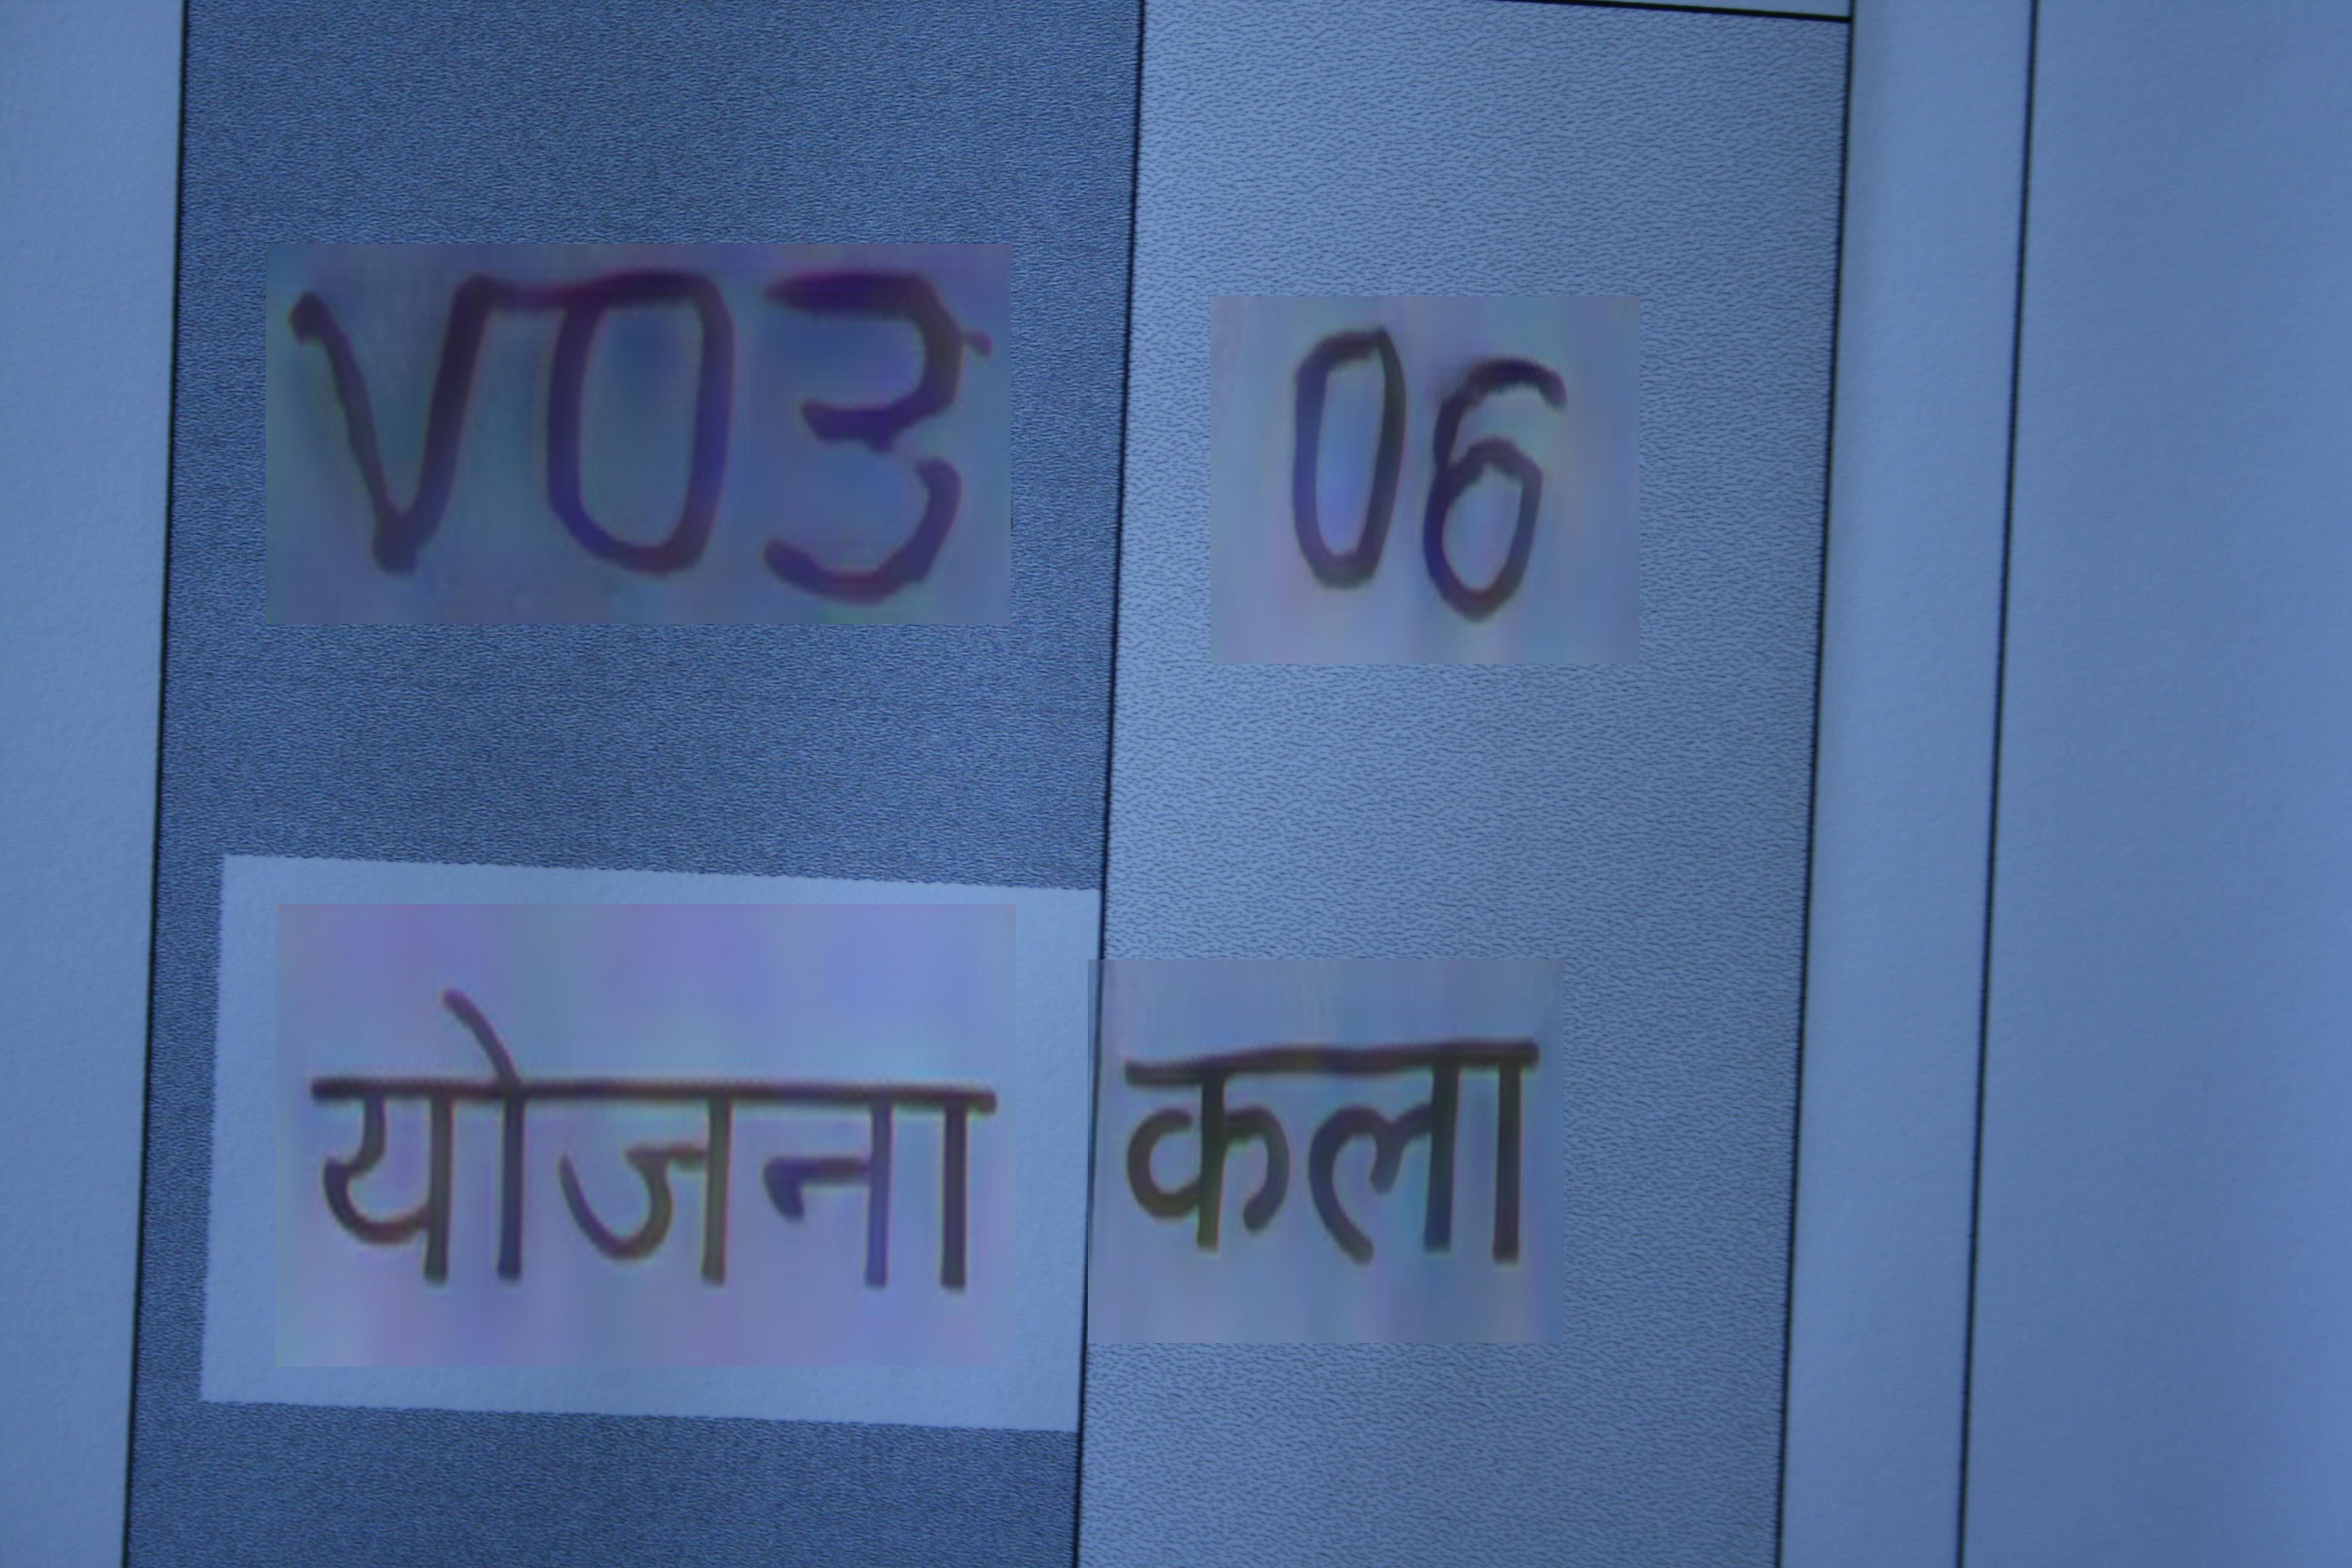 V03 06
योजना कला